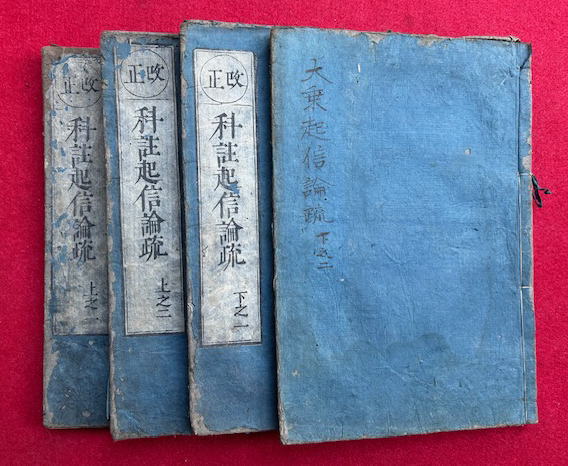 改正
科註起信論疏 上之一
改正
科註起信論疏 上之二
改正
科註起信論疏 下之一
大乗起信論疏 下之二